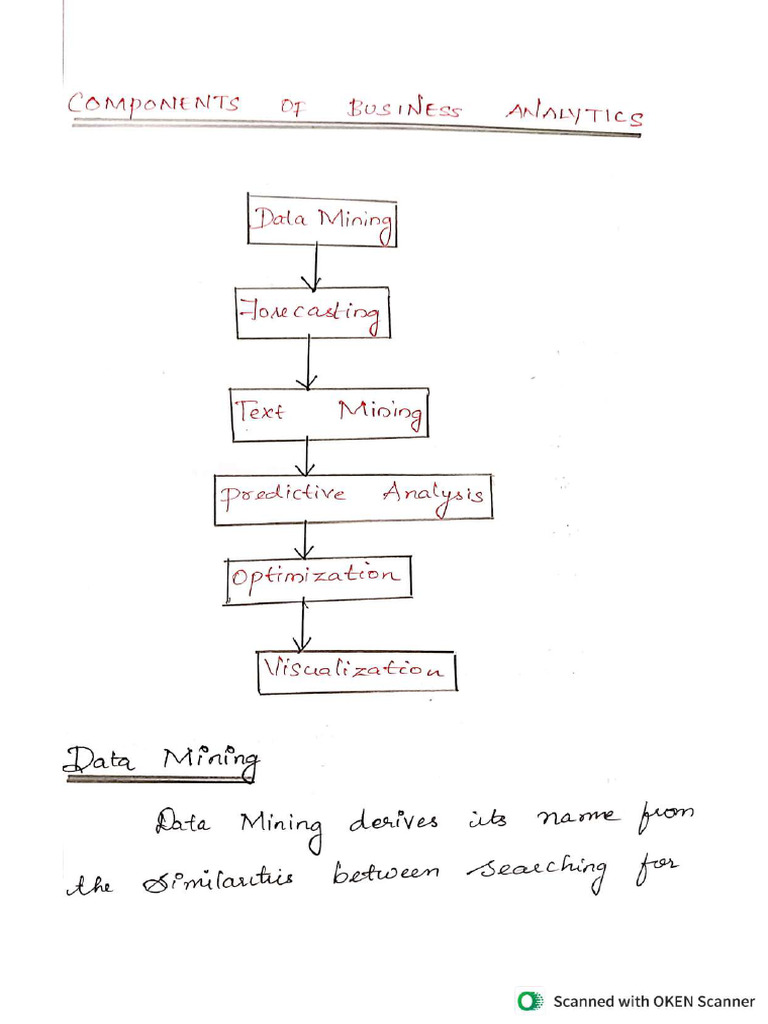 COMPONENTS OF BUSINESS ANALYTICS
Data Mining
Forecasting
Text Mining
Predictive Analysis
Optimization
Visualization
Data Mining
Data Mining derives its name from
the similarities between searching for
Scanned with OKEN Scanner